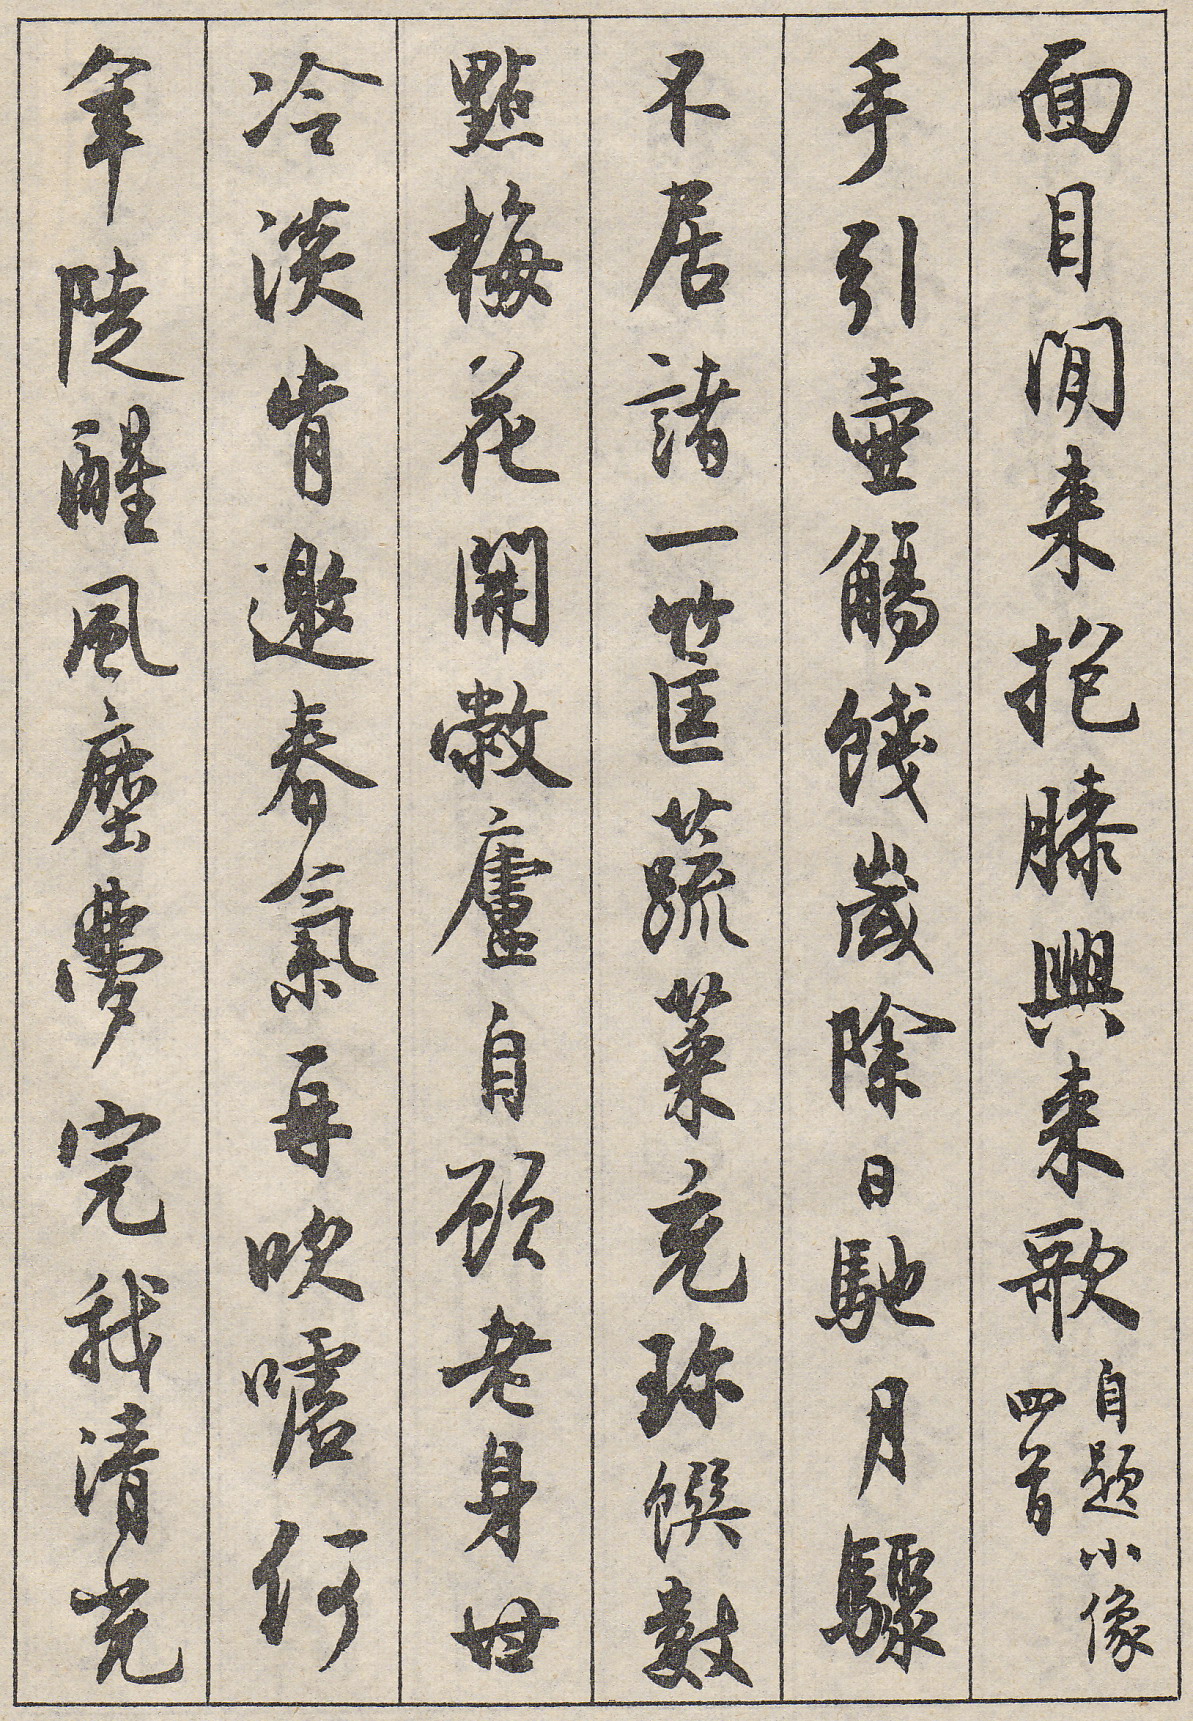 面目閒来抱膝興来歌 自題小像四首
手引壺觴餞歲除日馳月驟
不居諸一筐蔬菜充珎饌數
點梅花開敝廬自顧老身世
冷淡肯邀春氣再吹噓何
年陡醒風塵夢完我清光